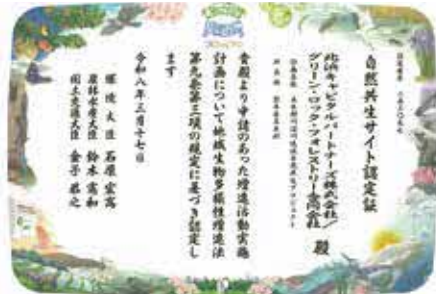 自然共生サイト認定証
北浜キャピタルパートナーズ株式会社／
グリーン・ロック・フォレストリー合同会社
殿
貴殿より申請のあった増進活動実施
計画について地域生物多様性増進法
第九条第三項の規定に基づき認定し
ます
令和八年三月十七日
環境大臣 石原宏高
農林水産大臣 鈴木憲和
国土交通大臣 金子恭之